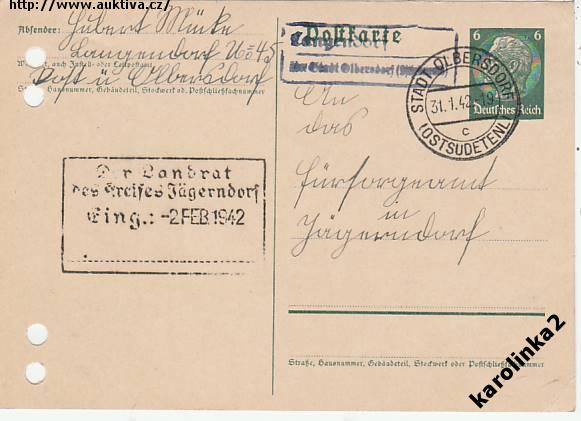 http://www.auktiva.cz/
Absender: Hubert Mücke
Langendorf No 45
Wohnort, auch Zustell- oder Leitpostamt
Post ü Olbersdorf
Straße, Hausnummer, Gebäudeteil, Stockwerk od. Postschließfachnummer
Postkarte
Langendorf
über Stadt Olbersdorf
STADT OLBERSDORF
31.1.42
c
(OSTSUDETENL.)
6 6
Deutsches Reich
An
das
Fürsorgeamt
in
Jägerndorf
Der Landrat
des Kreises Jägerndorf
Eing.: -2.FEB.1942
Straße, Hausnummer, Gebäudeteil, Stockwerk oder Postschließfachnummer
karolinka2